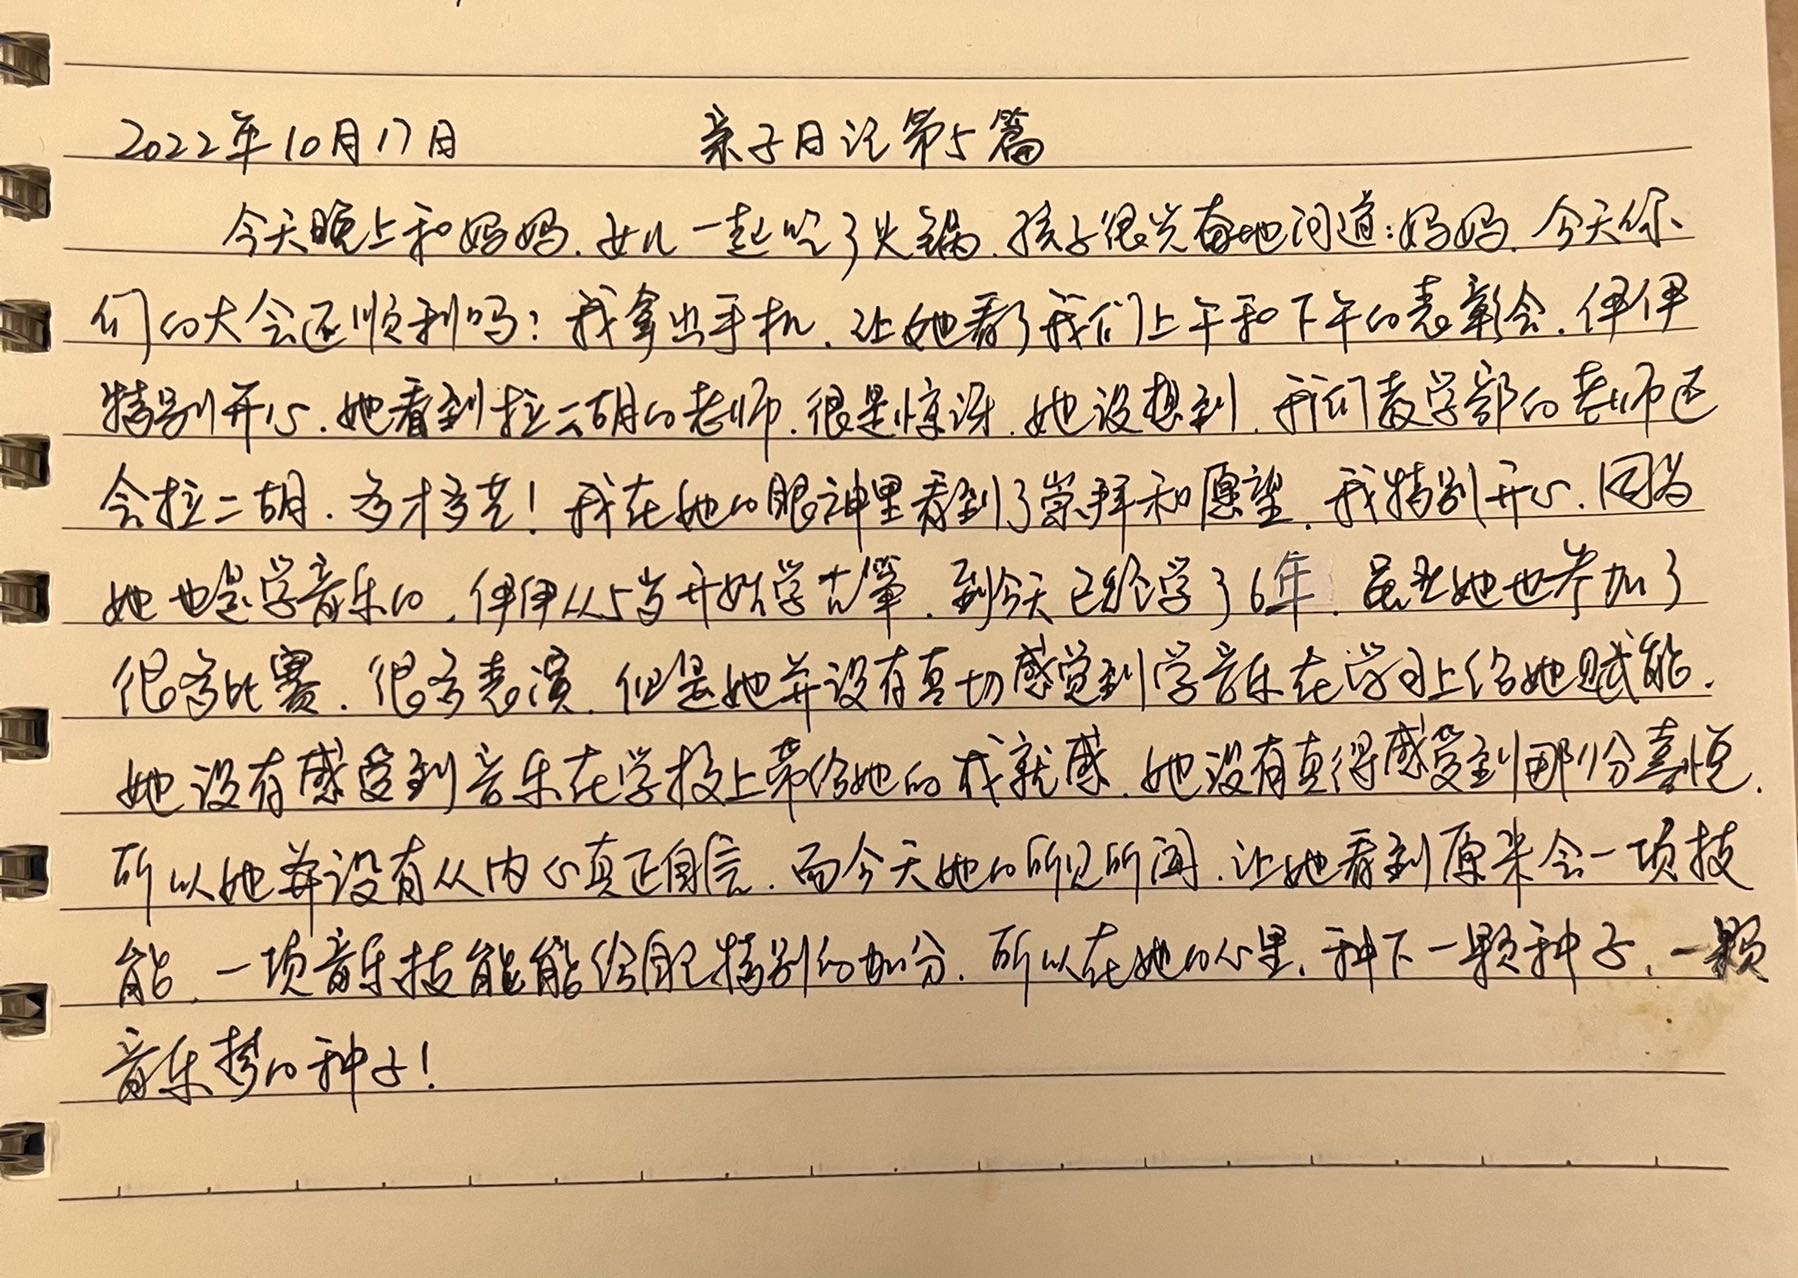 2022年10月17日 亲子日记第5篇
今天晚上和妈妈、女儿一起吃了火锅.孩子很兴奋地问道:妈妈.今天你
们的大会还顺利吗?我拿出手机.让她看了我们上午和下午的表彰会.伊伊
特别开心.她看到拉二胡的老师.很是惊讶.她没想到.我们教学部的老师还
会拉二胡.多才多艺!我在她的眼神里看到了崇拜和愿望.我特别开心.因为
她也是学音乐的.伊伊从5岁开始学古筝.到今天已经学了6年.虽然她也参加了
很多比赛.很多表演.但是她并没有真切感觉到学音乐在学习上给她赋能.
她没有感受到音乐在学校上带给她的成就感.她没有真得感受到那份喜悦.
所以她并没有从内心真正自信.而今天她的所见所闻.让她看到原来会一项技
能.一项音乐技能能给自己特别的加分.所以在她的心里.种下一颗种子.一颗
音乐梦的种子!